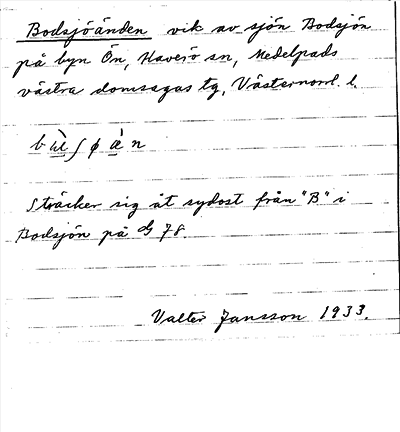 Bodsjöänden vik av sjön Bodsjön
på byn Ön, Haverö sn, Medelpads
västra domsagas tg, Västernorrl. l.
Sträcker sig åt sydost från "B" i
Bodsjön på G 78.
Valter Jansson 1933.